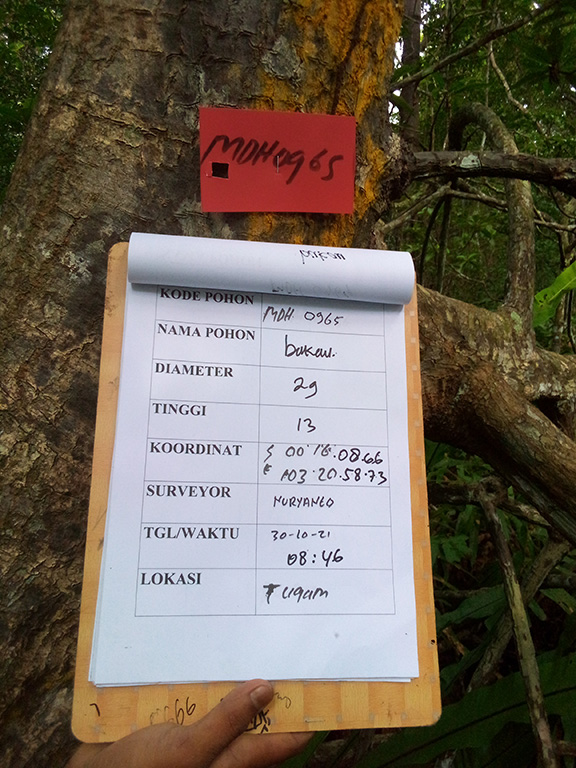 MDH0965
KODE POHON MDH 0965
NAMA POHON bakau.
DIAMETER 29
TINGGI 13
KOORDINAT S 00.16.08.66
E 103.20.58.73
SURVEYOR NURYANTO
TGL/WAKTU 30-10-21
08:46
LOKASI Tugam